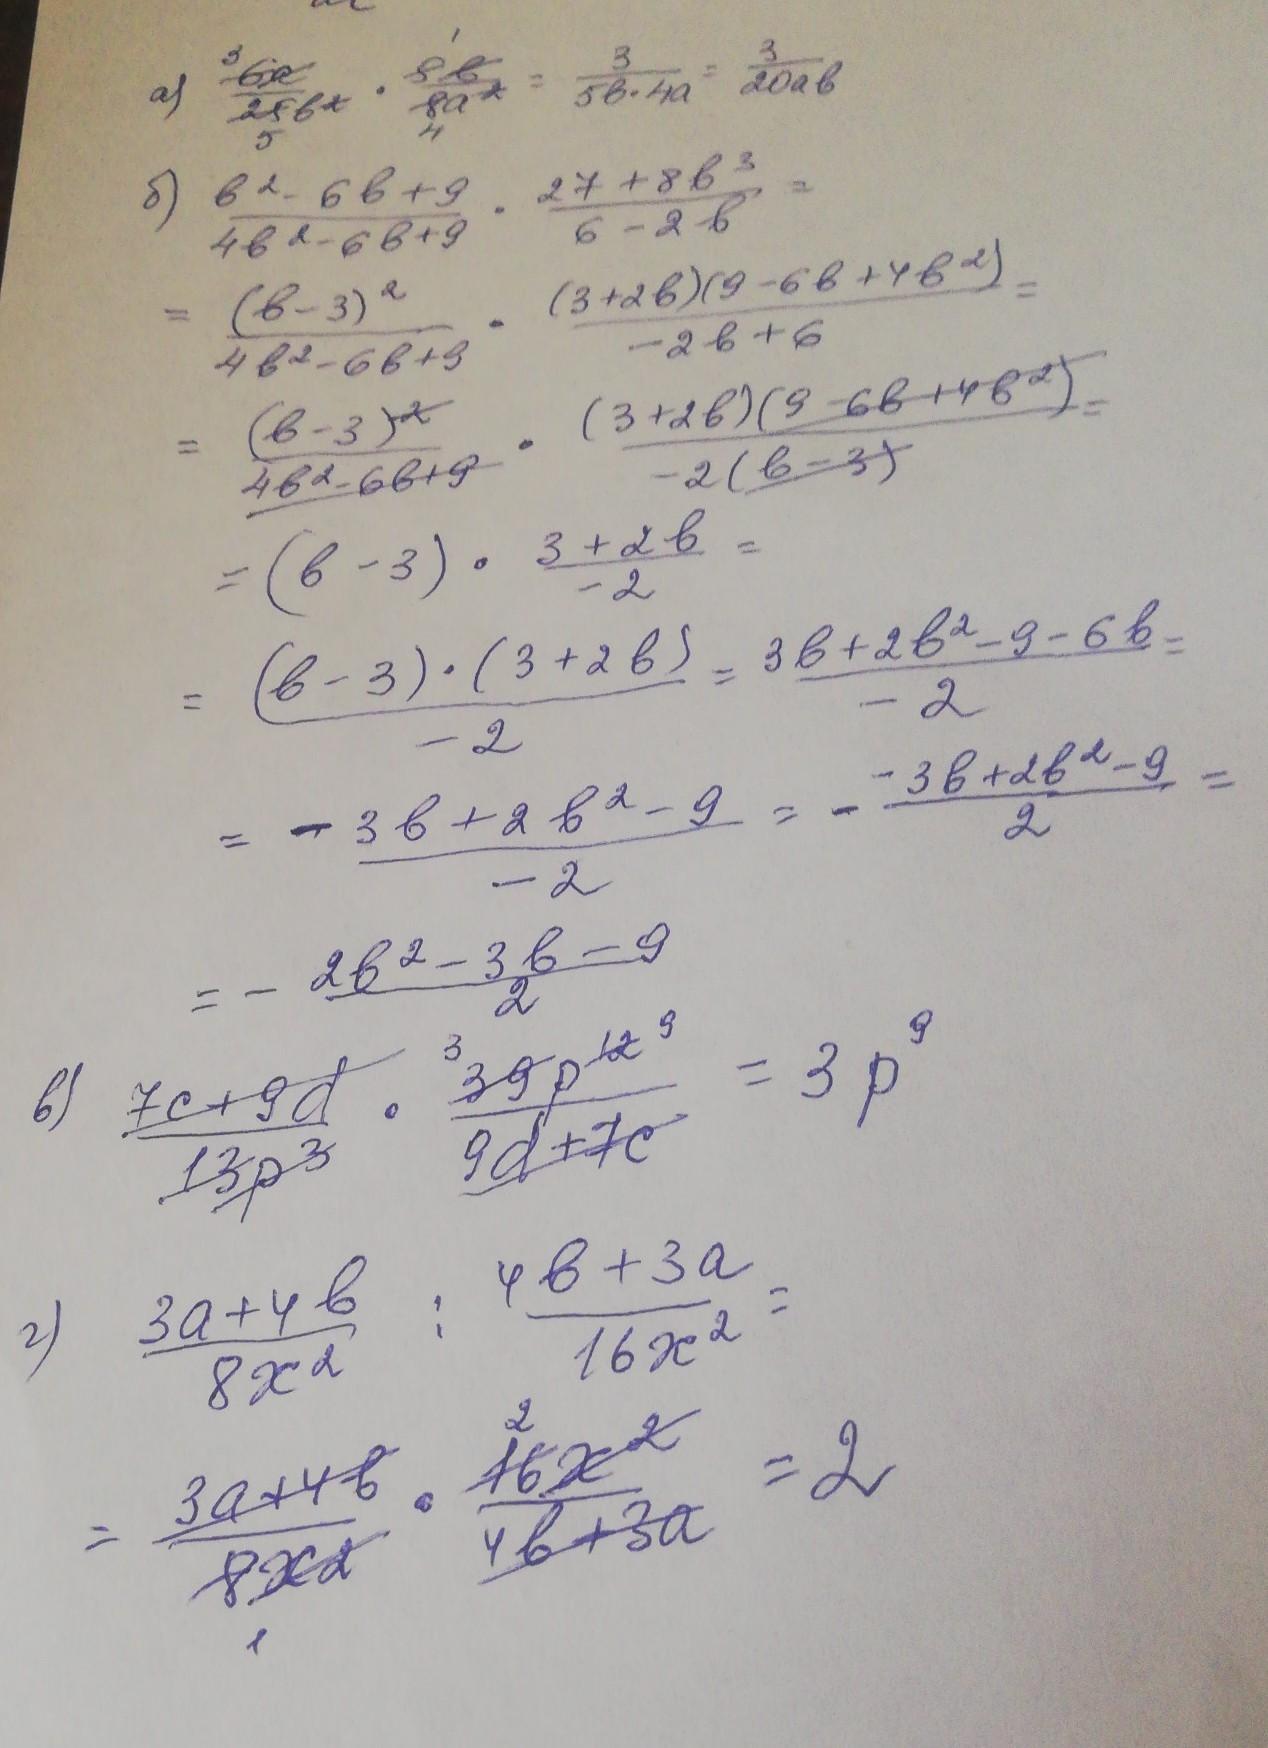 а) 6a/25b² · 5b/8a² = 3/5b·4a = 3/20ab
б) b²-6b+9/4b²-6b+9 · 27+8b³/6-2b =
= (b-3)²/4b²-6b+9 · (3+2b)(9-6b+4b²)/-2b+6 =
= (b-3)²/4b²-6b+9 · (3+2b)(9-6b+4b²)/-2(b-3) =
= (b-3) · 3+2b/-2 =
= (b-3)·(3+2b)/-2 = 3b+2b²-9-6b/-2 =
= -3b+2b²-9/-2 = - -3b+2b²-9/2 =
= - 2b²-3b-9/2
в) 7c+9d/13p³ · 39p¹²/9d+7c = 3p⁹
г) 3a+4b/8x² : 4b+3a/16x² =
= 3a+4b/8x² · 16x²/4b+3a = 2